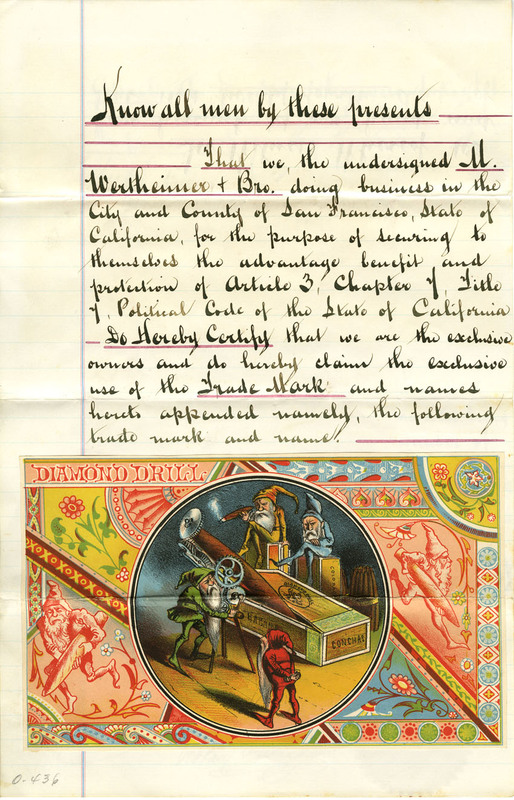 Know all men by these presents
That we, the undersigned M.
Wertheimer + Bro. doing business in the
City and County of San Francisco, State of
California, for the purpose of securing to
themselves the advantage benefit and
protection of Article 3, Chapter 7, Title
7, Political Code of the State of California
Do Hereby Certify that we are the exclusive
owners and do hereby claim the exclusive
use of the Trade Mark and names
hereto appended namely, the following
trade mark and name.
DIAMOND DRILL.
CONCHAS
0-436